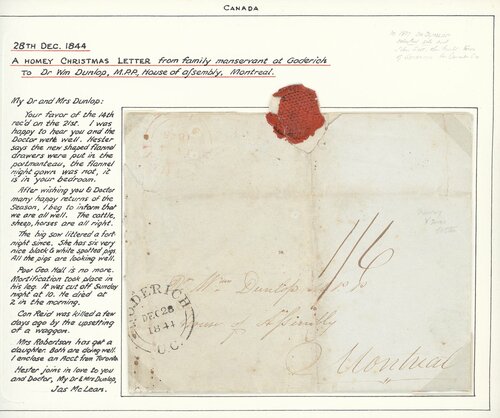 CANADA
28TH DEC. 1844
A HOMEY CHRISTMAS LETTER from family manservant at Goderich
To Dr Wm Dunlop, M.P.P., House of assembly, Montreal.
My Dr and Mrs Dunlop:
Your favor of the 14th
rec'd on the 21st. I was
happy to hear you and the
Doctor were well. Hester
says the new shaped flannel
drawers were put in the
portmanteau, the flannel
night gown was not, it
is in your bedroom.
After wishing you & Doctor
many happy returns of the
Season, I beg to inform that
we are all well. The cattle,
sheep, horses are all right.
The big sow littered a fort-
night since. She has six very
nice black & white spotted pigs
All the pigs are looking well.
Poor Geo Hall is no more.
Mortification took place in
his leg. It was cut off Sunday
night at 10. He died at
2 in the morning.
Con Reid was killed a few
days ago by the upsetting
of a waggon.
Mrs Robertson has got a
daughter. Both are doing well.
I enclose an Acct from Toronto.
Hester joins in love to you
and Doctor, My Dr & Mrs Dunlop,
Jas McLean.
1/6
Dr Wm Dunlop
House of Assembly
Montreal
GODERICH
DEC 28
1844
U.C.